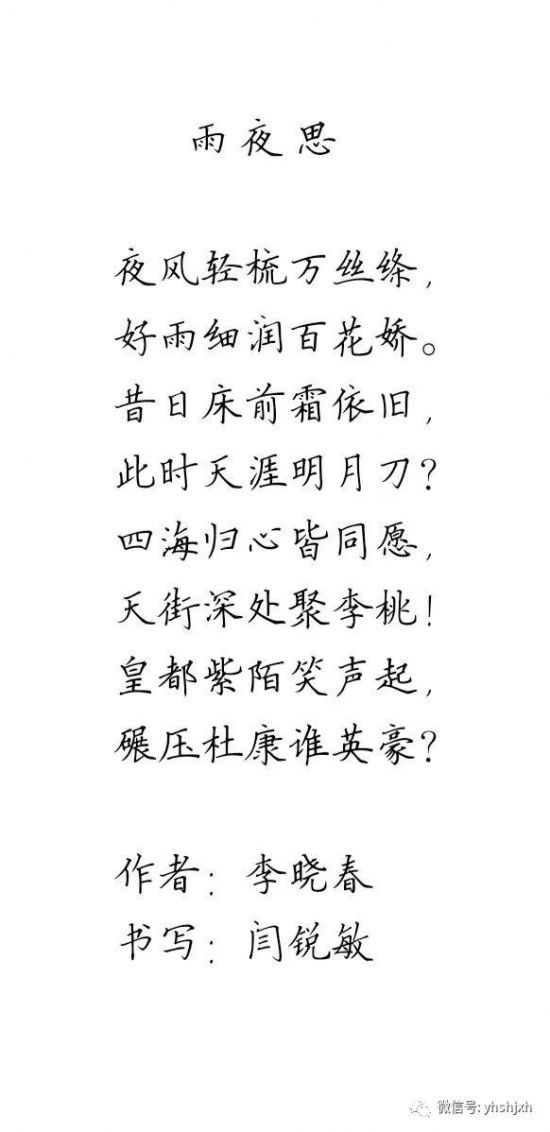 雨夜思
夜风轻梳万丝绦，
好雨细润百花娇。
昔日床前霜依旧，
此时天涯明月刀？
四海归心皆同愿，
天街深处聚李桃！
皇都紫陌笑声起，
碾压杜康谁英豪？
作者：李晓春
书写：闫锐敏
微信号: yhshjxh